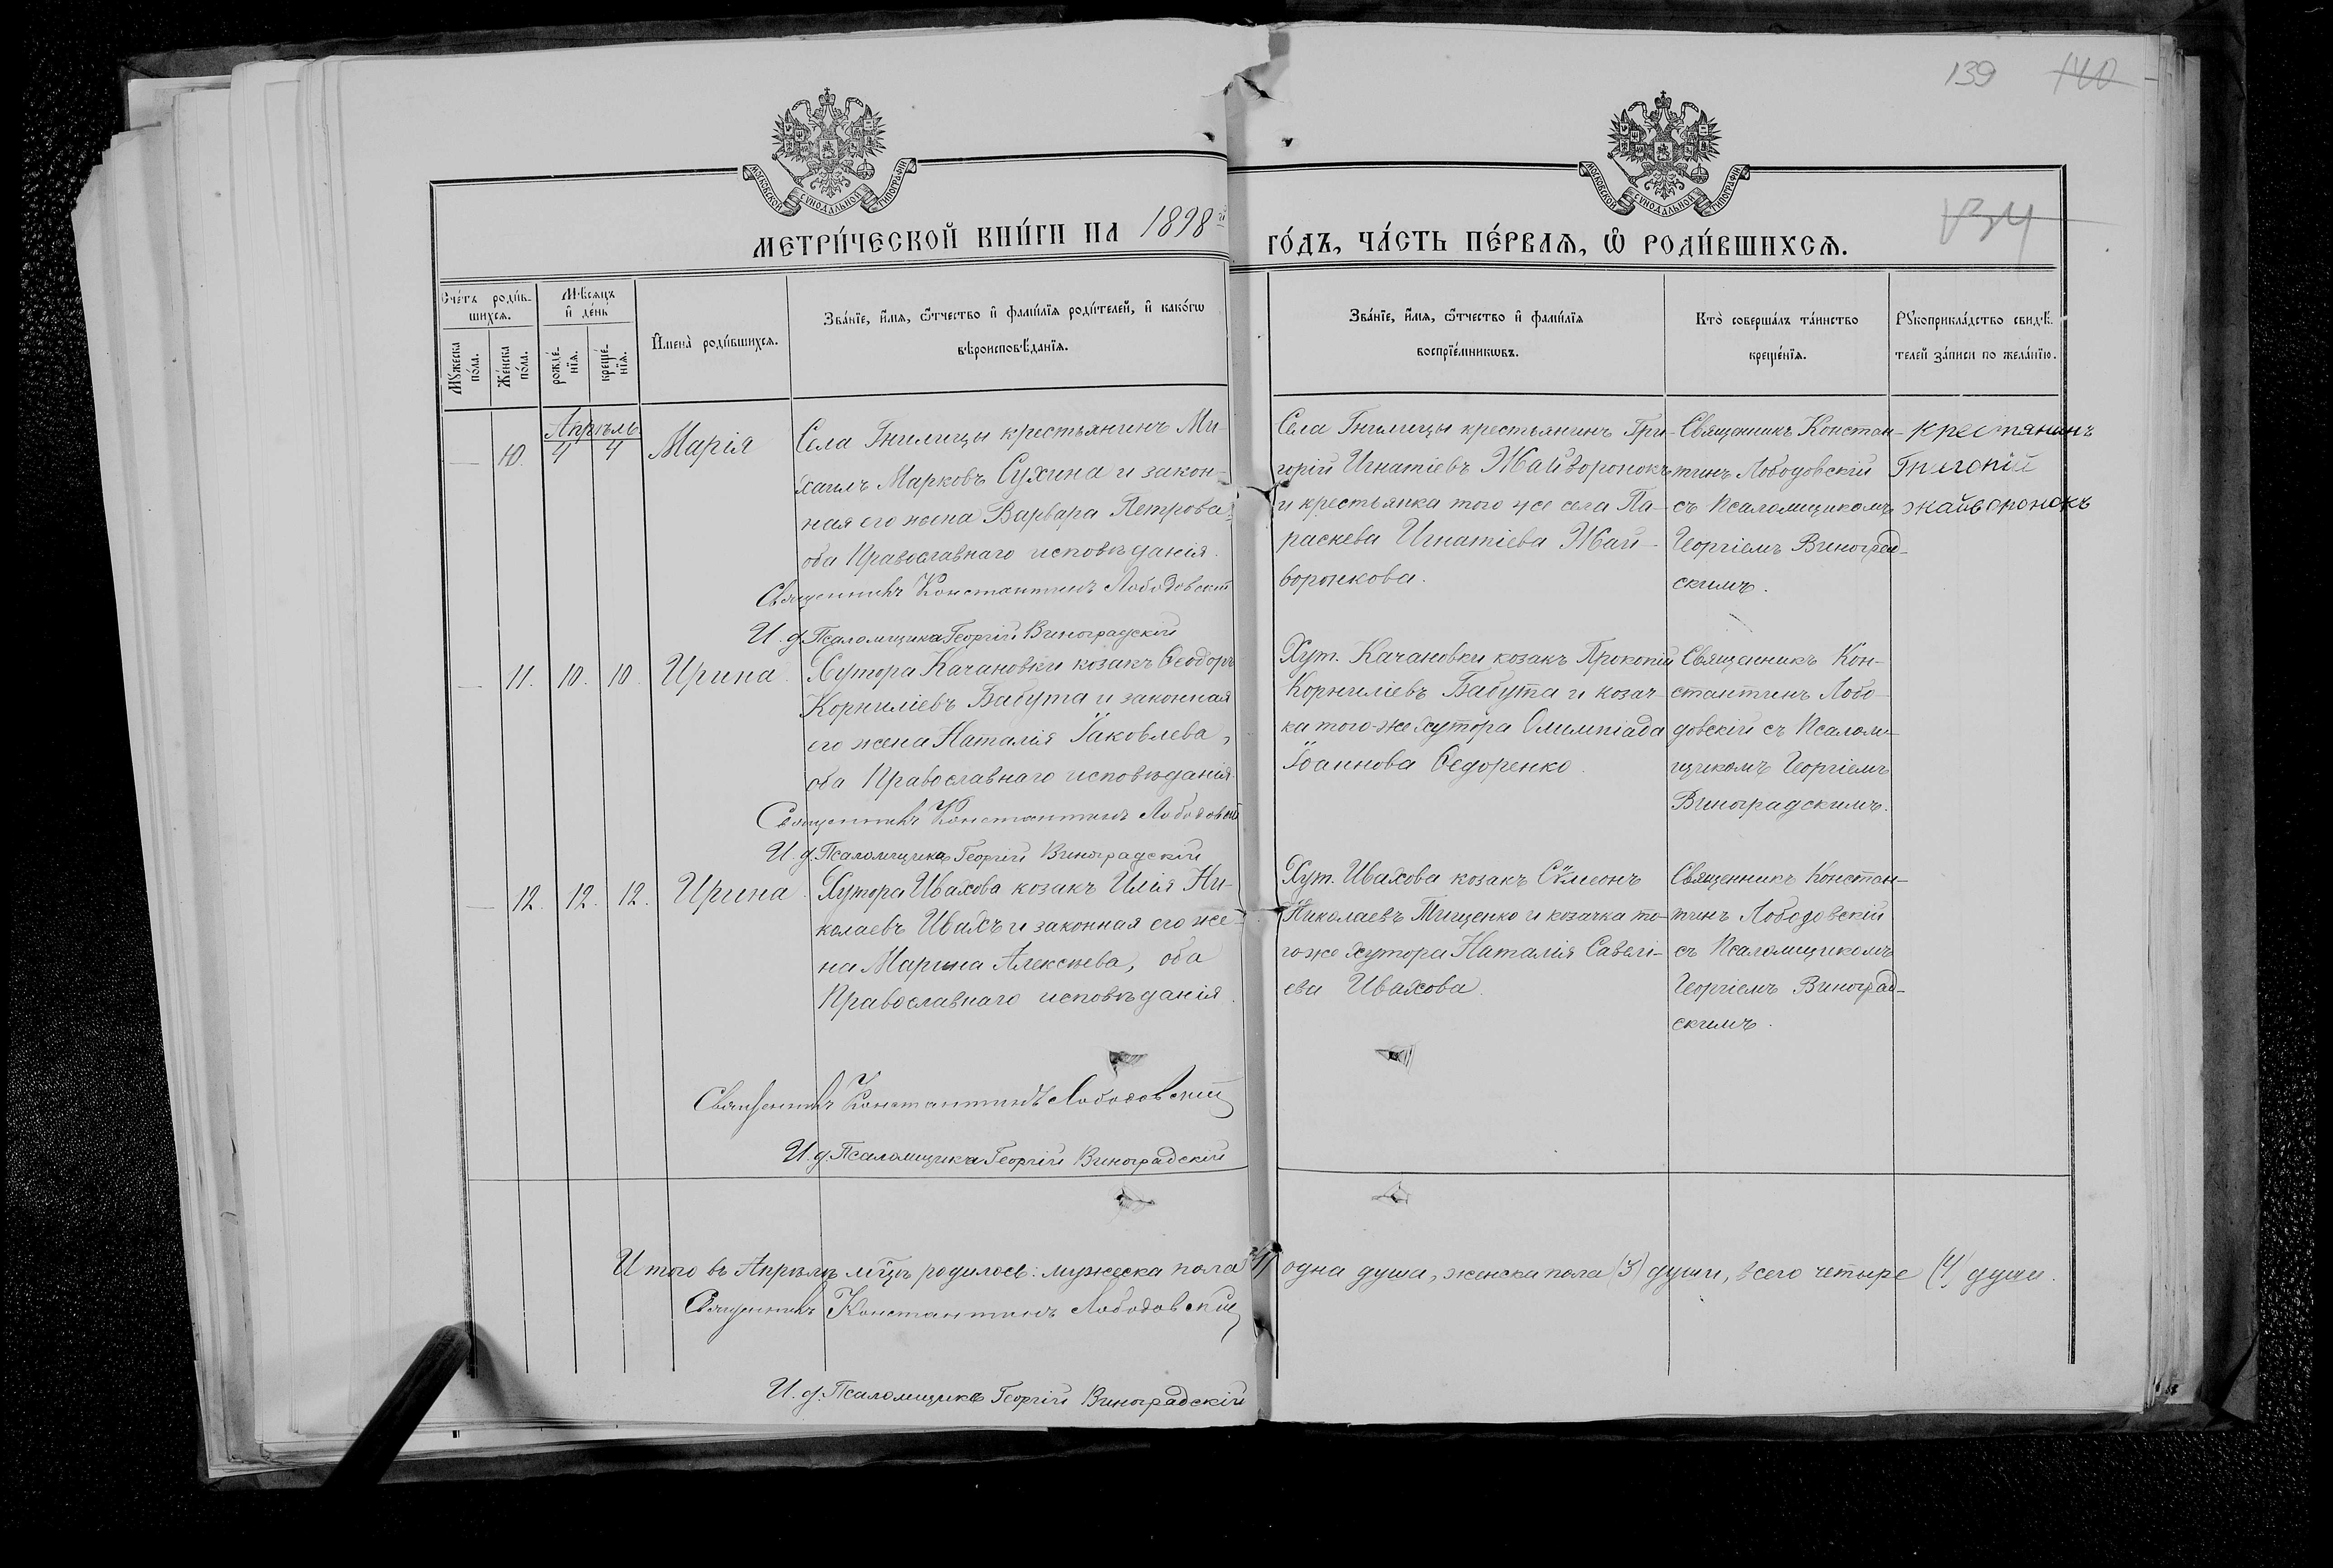 139 140
134
МОСКОВСКОЙ СѴНОДАЛЬНОЙ ТИПОГРАФІИ
МОСКОВСКОЙ СѴНОДАЛЬНОЙ ТИПОГРАФІИ
МЕТРИ́ЧЕСКОЙ КНИ́ГИ НА 1898й
ГО́ДЪ, ЧА́СТЬ ПЕ́РВАѦ, Ѡ РОДИ́ВШИХСѦ.
Сче́тъ роди́в-
шихсѧ.
Мꙋ́жеска
по́ла.
Же́нска
по́ла.
Мѣ́сѧцъ
и де́нь
рожде́-
нїѧ.
креще́-
нїѧ.
Имена̀ роди́вшихсѧ.
Зва́нїе, и́мѧ, ѻ́тчество и фами́лїѧ роди́телей, и како́гѡ
вѣроисповѣ́данїѧ.
Зва́нїе, и́мѧ, ѻ́тчество и фами́лїѧ
воспрїе́мникѡвъ.
Кто̀ соверша́лъ та́инство
креще́нїѧ.
Рꙋкоприкла́дство свидѣ́-
телей за́писи по жела́нїю.
Апрѣль
10. 4 4 Марія
Села Гнилицы крестьянинъ Ми-
хаилъ Марковъ Сухина и закон-
ная его жена Варвара Петрова,
оба Православнаго исповѣданія.
Священникъ Константинъ Лободовскій
И. д. Псаломщика Георгій Виноградскій
Села Гнилицы крестьянинъ Гри-
горій Игнатіевъ Жайворонокъ
и крестьянка того же села Па-
раскева Игнатіева Жай-
воронкова.
Священникъ Констан-
тинъ Лободовскій
съ Псаломщикомъ
Георгіемъ Виноград-
скимъ.
крестянинъ
Григорій
жайворонокъ
11. 10. 10. Ирина.
Хутора Качановки козакъ Ѳеодоръ
Корниліевъ Бабута и законная
его жена Наталія Іаковлева,
оба Православнаго исповѣданія.
Священникъ Константинъ Лободовскій
И. д. Псаломщика Георгій Виноградскій
Хут. Качановки козакъ Прокопій
Корниліевъ Бабута и козач-
ка того-же хутора Олимпіада
Іоаннова Ѳедоренко.
Священникъ Кон-
стантинъ Лобо-
довскій съ Псалом-
щикомъ Георгіемъ
Виноградскимъ.
12. 12. 12. Ирина.
Хутора Ивахова козакъ Илія Ни-
колаевъ Ивахъ и законная его же-
на Марина Алексѣева, оба
Православнаго исповѣданія.
Священникъ Константинъ Лободовскій
И. д. Псаломщика Георгій Виноградскій
Хут. Ивахова козакъ Сѵмеонъ
Николаевъ Тищенко и козачка то-
гоже хутора Наталія Савелі-
ева Ивахова.
Священникъ Констан-
тинъ Лободовскій
съ Псаломщикомъ
Георгіемъ Виноград-
скимъ.
Итого въ Апрѣлѣ мцѣ родилось: мужеска пола (1) одна душа, женска пола (3) души, всего четыре (4) души.
Священникъ Константинъ Лободовскій
И. д. Псаломщика Георгій Виноградскій